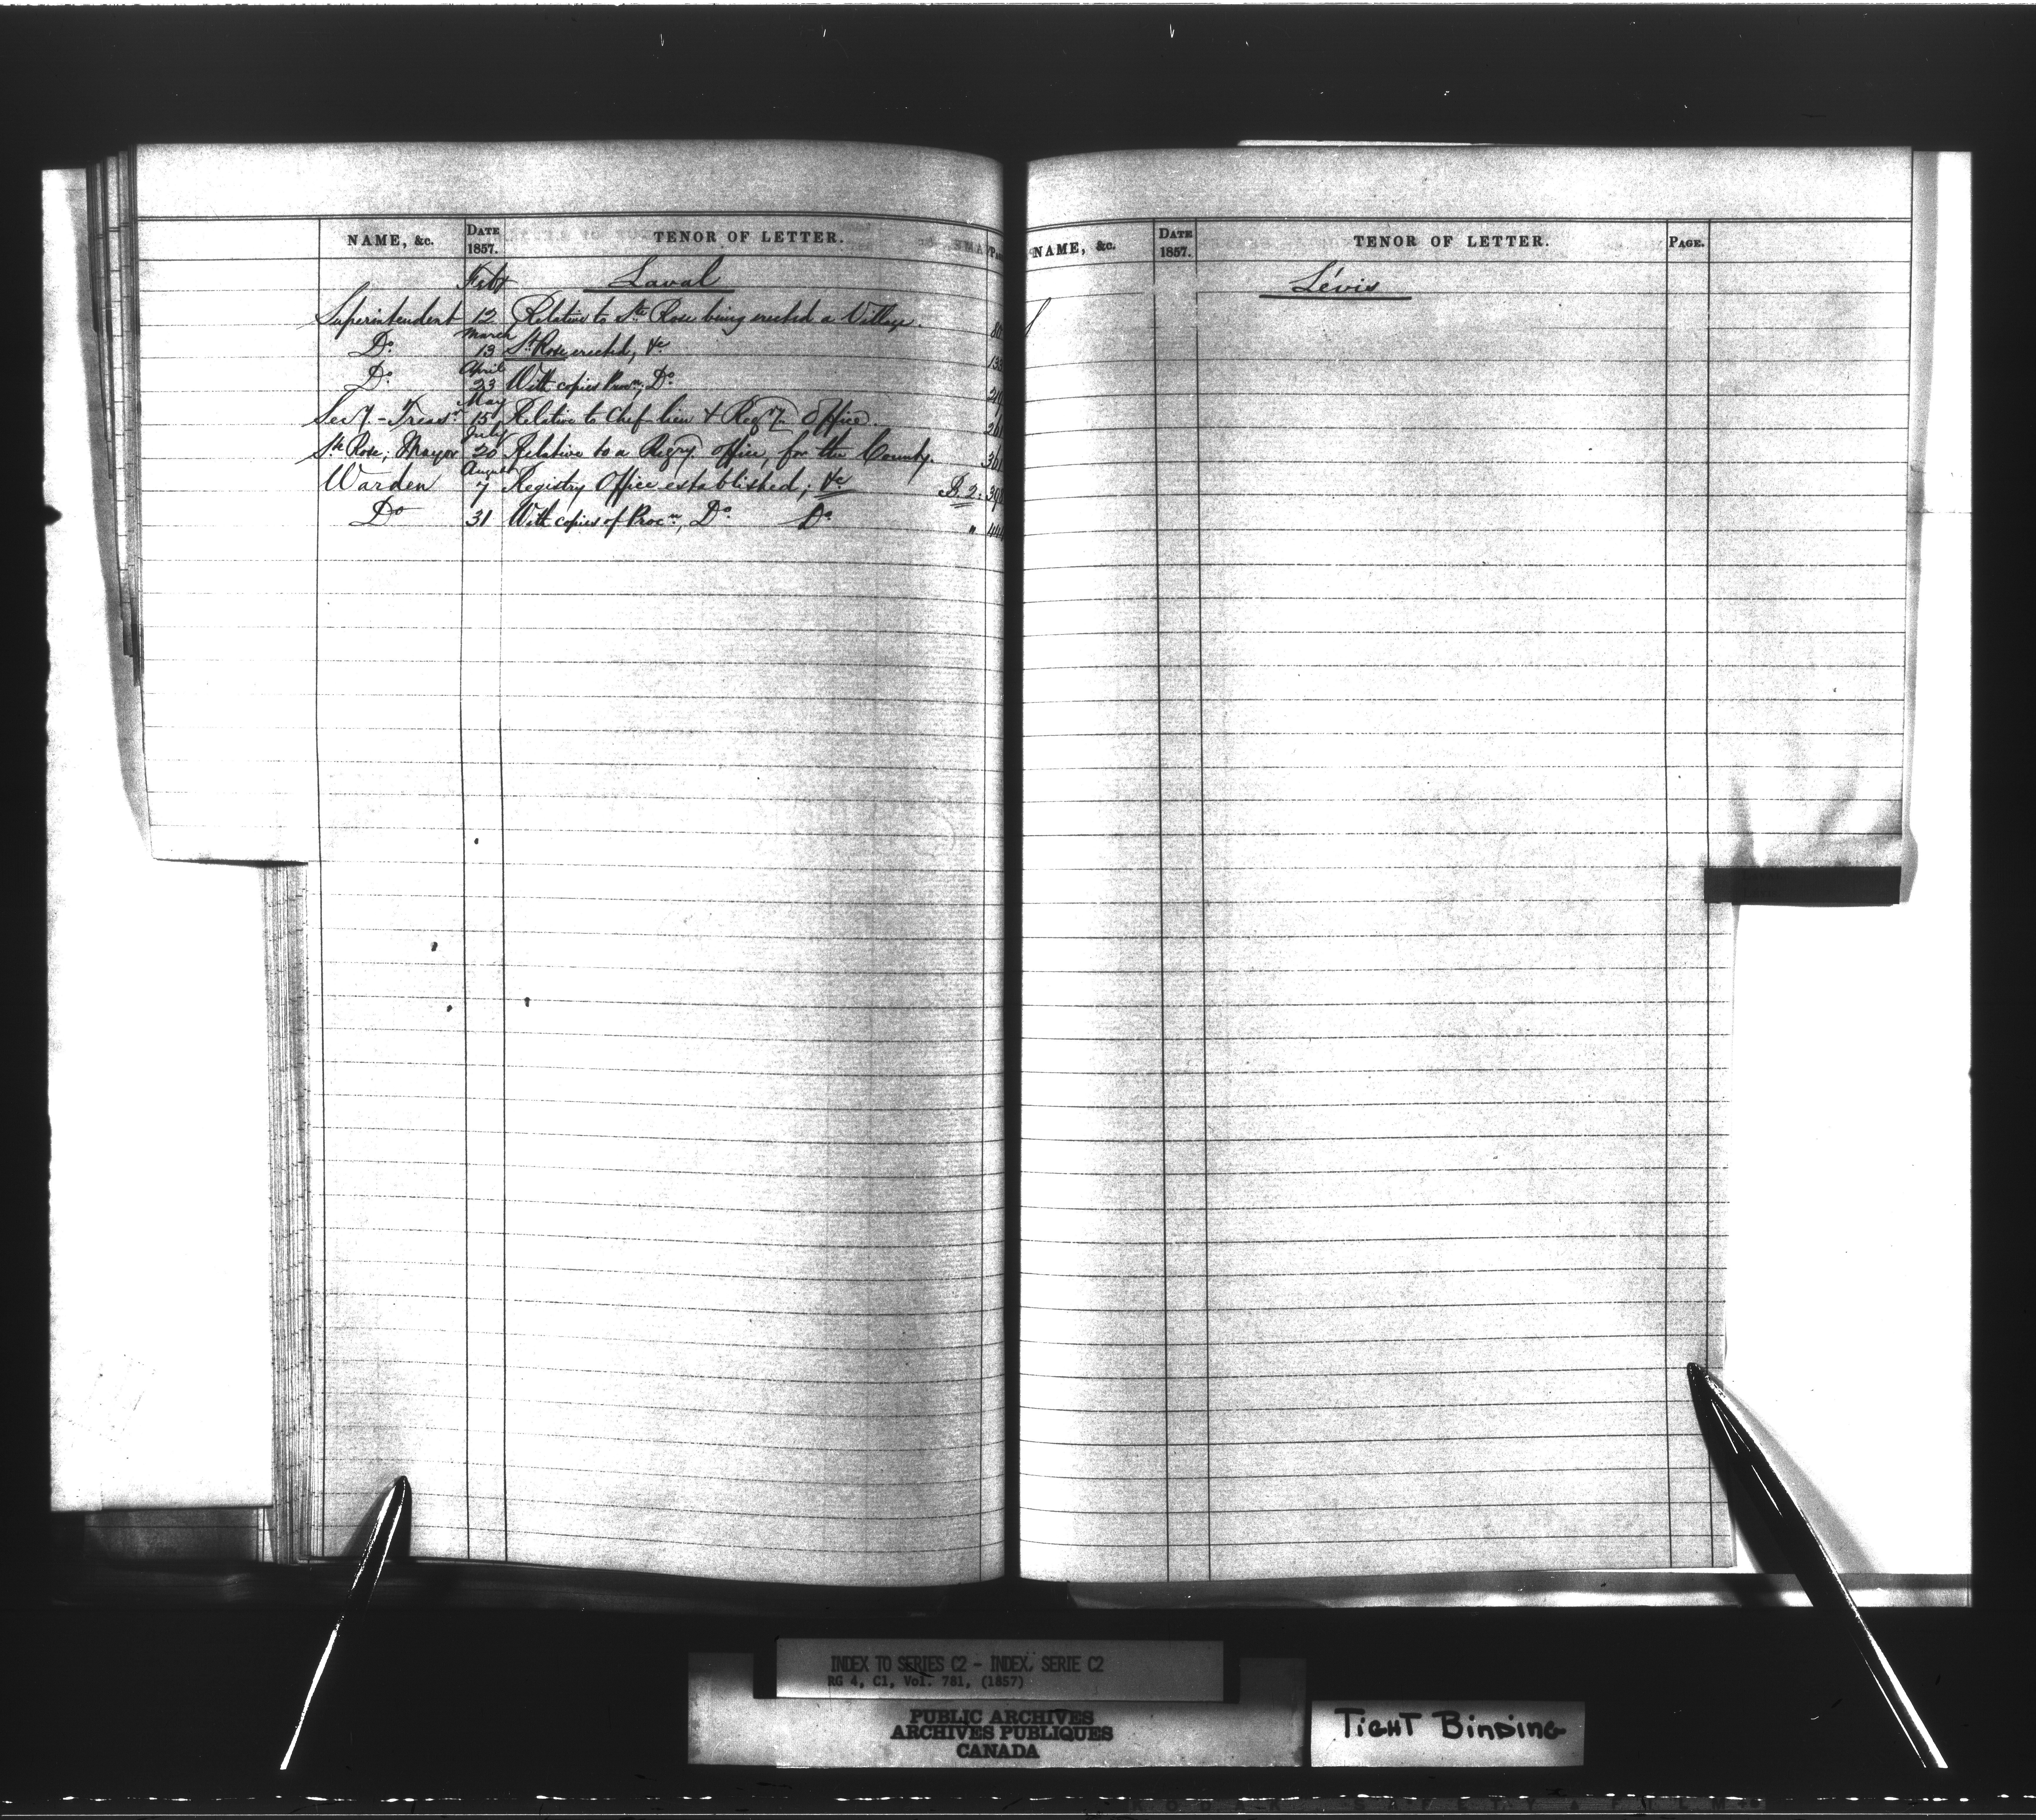 NAME, &c. DATE 1857. TENOR OF LETTER.
Feby Laval
Superintendent 12 Relative to Ste Rose being erected a Village.
March
Do 13 St Rose erected, &c
April
Do 23 With copies Procn, Do
May
Secy.-Treasr 15 Relative to Chef-lieu & Regy. Office.
July
Ste Rose; Mayor 20 Relative to a Regry. Office, for the County.
August
Warden 7 Registry Office established; &c B. 2:
Do 31 With copies of Procn; Do Do "
NAME, &c. DATE 1857. TENOR OF LETTER. PAGE.
Lévis
INDEX TO SERIES C2 - INDEX, SERIE C2
RG 4, C1, Vol. 781, (1857)
PUBLIC ARCHIVES
ARCHIVES PUBLIQUES
CANADA
TIGHT BINDING